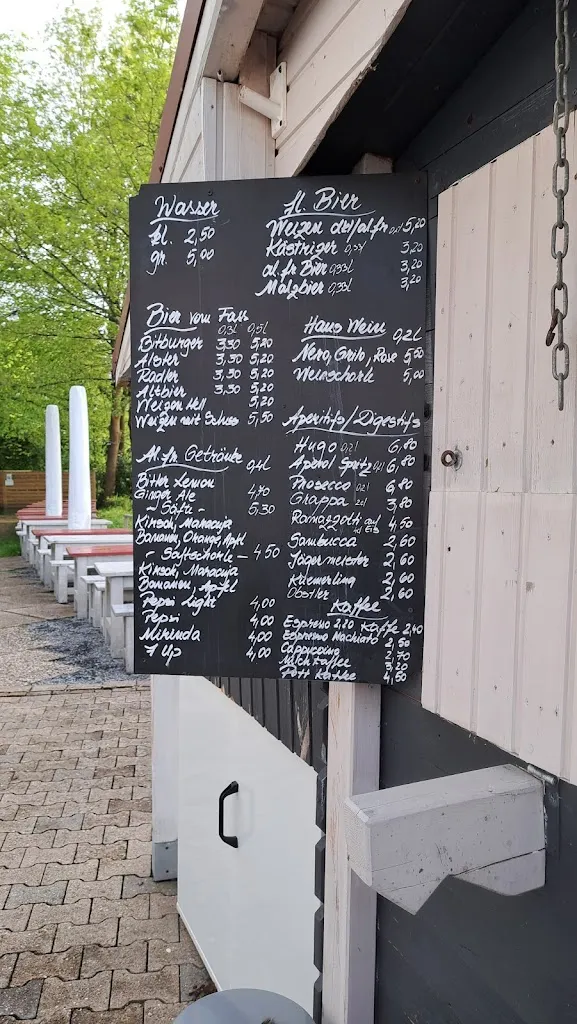 Wasser
kl. 2,50
gr. 5,00
fl. Bier
Weizen dkl/al.fr 0,5l 5,20
Kästriger 0,33l 3,20
al.fr Bier 0,33l 3,20
Malzbier 0,33l 3,20
Bier vom Fass
0,3l 0,5l
Bitburger 3,30 5,20
Alster 3,30 5,20
Radler 3,30 5,20
Altbier 3,30 5,20
Weizen Hell 5,20
Weizen mit Schuss 5,50
Haus Wein 0,2l
Nero, Grib, Rose 5,50
Weinschorle 5,00
Al.fr. Getränke 0,4l
Bitter Lemon
Ginger Ale 4,70
- Säfte - 5,30
Kirsch, Maracuja
Bananen, Orange, Apfel
- Saftschorle - 4,50
Kirsch, Maracuja
Bananen, Apfel
Pepsi Light 4,00
Pepsi 4,00
Mirinda 4,00
7 Up 4,00
Aperitifs/Digestifs
Hugo 0,2l 6,80
Aperol Spritz 0,2l 6,80
Prosecco 0,2l 6,80
Grappa 2cl 3,80
Ramazzotti auf Eis 4,50
Sambucca 2,60
Jägermeister 2,60
Kuemerling 2,60
Obstler 2,60
Kaffee
Espresso 2,20 Kaffe 2,40
Espresso Machiato 2,50
Cappuccino 2,70
Milch Kaffee 3,20
Pott Kaffee 4,50